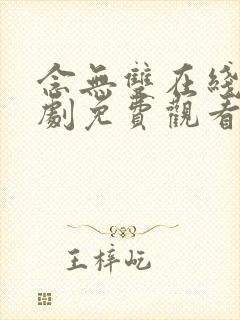 念無雙在綫
劇免費觀看
王梓屹